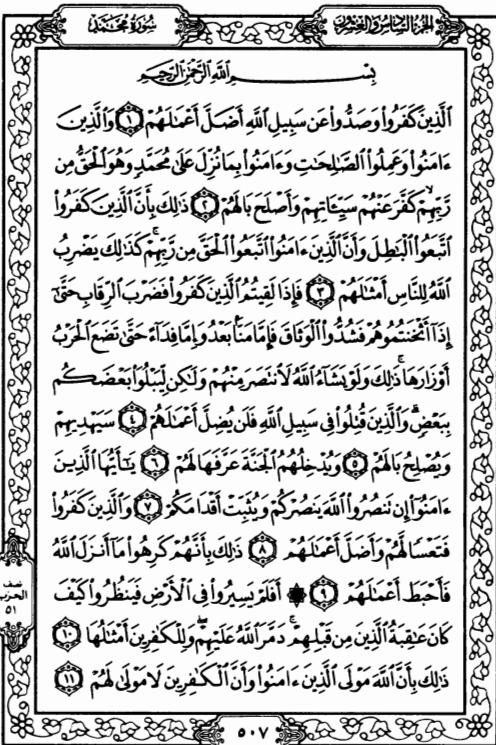 الجزء السادس والعشرون
سورة محمد
بِسْمِ اللَّهِ الرَّحْمَٰنِ الرَّحِيمِ
الَّذِينَ كَفَرُوا۟ وَصَدُّوا۟ عَن سَبِيلِ اللَّهِ أَضَلَّ أَعْمَٰلَهُمْ ١ وَالَّذِينَ
ءَامَنُوا۟ وَعَمِلُوا۟ الصَّٰلِحَٰتِ وَءَامَنُوا۟ بِمَا نُزِّلَ عَلَىٰ مُحَمَّدٍ وَهُوَ الْحَقُّ مِن
رَّبِّهِمْ كَفَّرَ عَنْهُمْ سَيِّـَٔاتِهِمْ وَأَصْلَحَ بَالَهُمْ ٢ ذَٰلِكَ بِأَنَّ الَّذِينَ كَفَرُوا۟
اتَّبَعُوا۟ الْبَٰطِلَ وَأَنَّ الَّذِينَ ءَامَنُوا۟ اتَّبَعُوا۟ الْحَقَّ مِن رَّبِّهِمْ كَذَٰلِكَ يَضْرِبُ
اللَّهُ لِلنَّاسِ أَمْثَٰلَهُمْ ٣ فَإِذَا لَقِيتُمُ الَّذِينَ كَفَرُوا۟ فَضَرْبَ الرِّقَابِ حَتَّىٰٓ
إِذَآ أَثْخَنتُمُوهُمْ فَشُدُّوا۟ الْوَثَاقَ فَإِمَّا مَنًّۢا بَعْدُ وَإِمَّا فِدَآءً حَتَّىٰ تَضَعَ الْحَرْبُ
أَوْزَارَهَا ذَٰلِكَ وَلَوْ يَشَآءُ اللَّهُ لَانتَصَرَ مِنْهُمْ وَلَٰكِن لِّيَبْلُوَا۟ بَعْضَكُم
بِبَعْضٍ وَالَّذِينَ قُتِلُوا۟ فِى سَبِيلِ اللَّهِ فَلَن يُضِلَّ أَعْمَٰلَهُمْ ٤ سَيَهْدِيهِمْ
وَيُصْلِحُ بَالَهُمْ ٥ وَيُدْخِلُهُمُ الْجَنَّةَ عَرَّفَهَا لَهُمْ ٦ يَٰٓأَيُّهَا الَّذِينَ
ءَامَنُوٓا۟ إِن تَنصُرُوا۟ اللَّهَ يَنصُرْكُمْ وَيُثَبِّتْ أَقْدَامَكُمْ ٧ وَالَّذِينَ كَفَرُوا۟
فَتَعْسًا لَّهُمْ وَأَضَلَّ أَعْمَٰلَهُمْ ٨ ذَٰلِكَ بِأَنَّهُمْ كَرِهُوا۟ مَآ أَنزَلَ اللَّهُ
فَأَحْبَطَ أَعْمَٰلَهُمْ ٩ ۞ أَفَلَمْ يَسِيرُوا۟ فِى الْأَرْضِ فَيَنظُرُوا۟ كَيْفَ
كَانَ عَٰقِبَةُ الَّذِينَ مِن قَبْلِهِمْ دَمَّرَ اللَّهُ عَلَيْهِمْ وَلِلْكَٰفِرِينَ أَمْثَٰلُهَا ١٠
ذَٰلِكَ بِأَنَّ اللَّهَ مَوْلَى الَّذِينَ ءَامَنُوا۟ وَأَنَّ الْكَٰفِرِينَ لَا مَوْلَىٰ لَهُمْ ١١
نصف
الحزب
٥١
٥٠٧